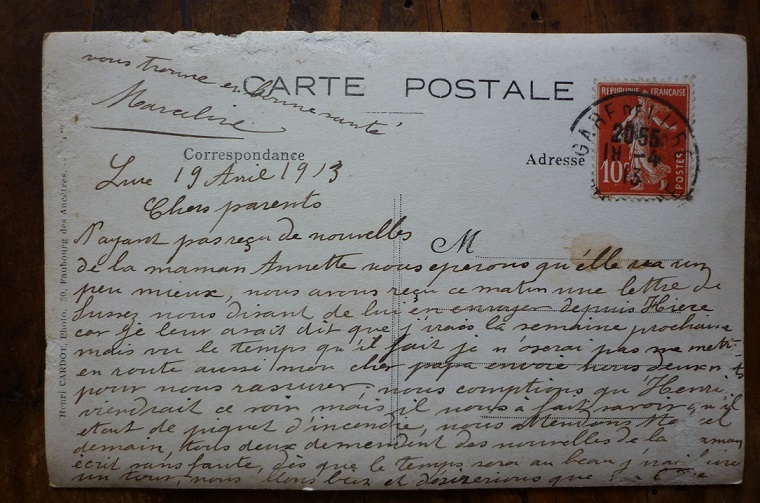 vous trouve en bonne santé
Marceline
CARTE POSTALE
REPUBLIQUE FRANÇAISE
10c
POSTES
GARE DE
20 55
18 - 4
13
Correspondance
Adresse
Lure 19 Avril 1913
Chers parents
N'ayant pas reçu de nouvelles
M
de la maman Annette nous esperons qu'elle va un
peu mieux, nous avons reçu ce matin une lettre de
nous disant de lui en envoyer depuis
car je leur avait dit que j'irais la semaine prochaine
mais vu le temps qu'il fait je n'oserai pas me
en route aussi mon cher papa envoie nous deux
pour nous rassurer, nous comptions qu'Henri
viendrait ce soir mais il nous a fait savoir qu'il
etait de piquet d'incendre, nous attendons
demain, tous deux demandent des nouvelles de la
écrit sans faute, dès que le temps sera au beau j'irai
un tour, nous bien et que
Henri CARDOT, Photo. 20, Faubourg des Ancêtres.